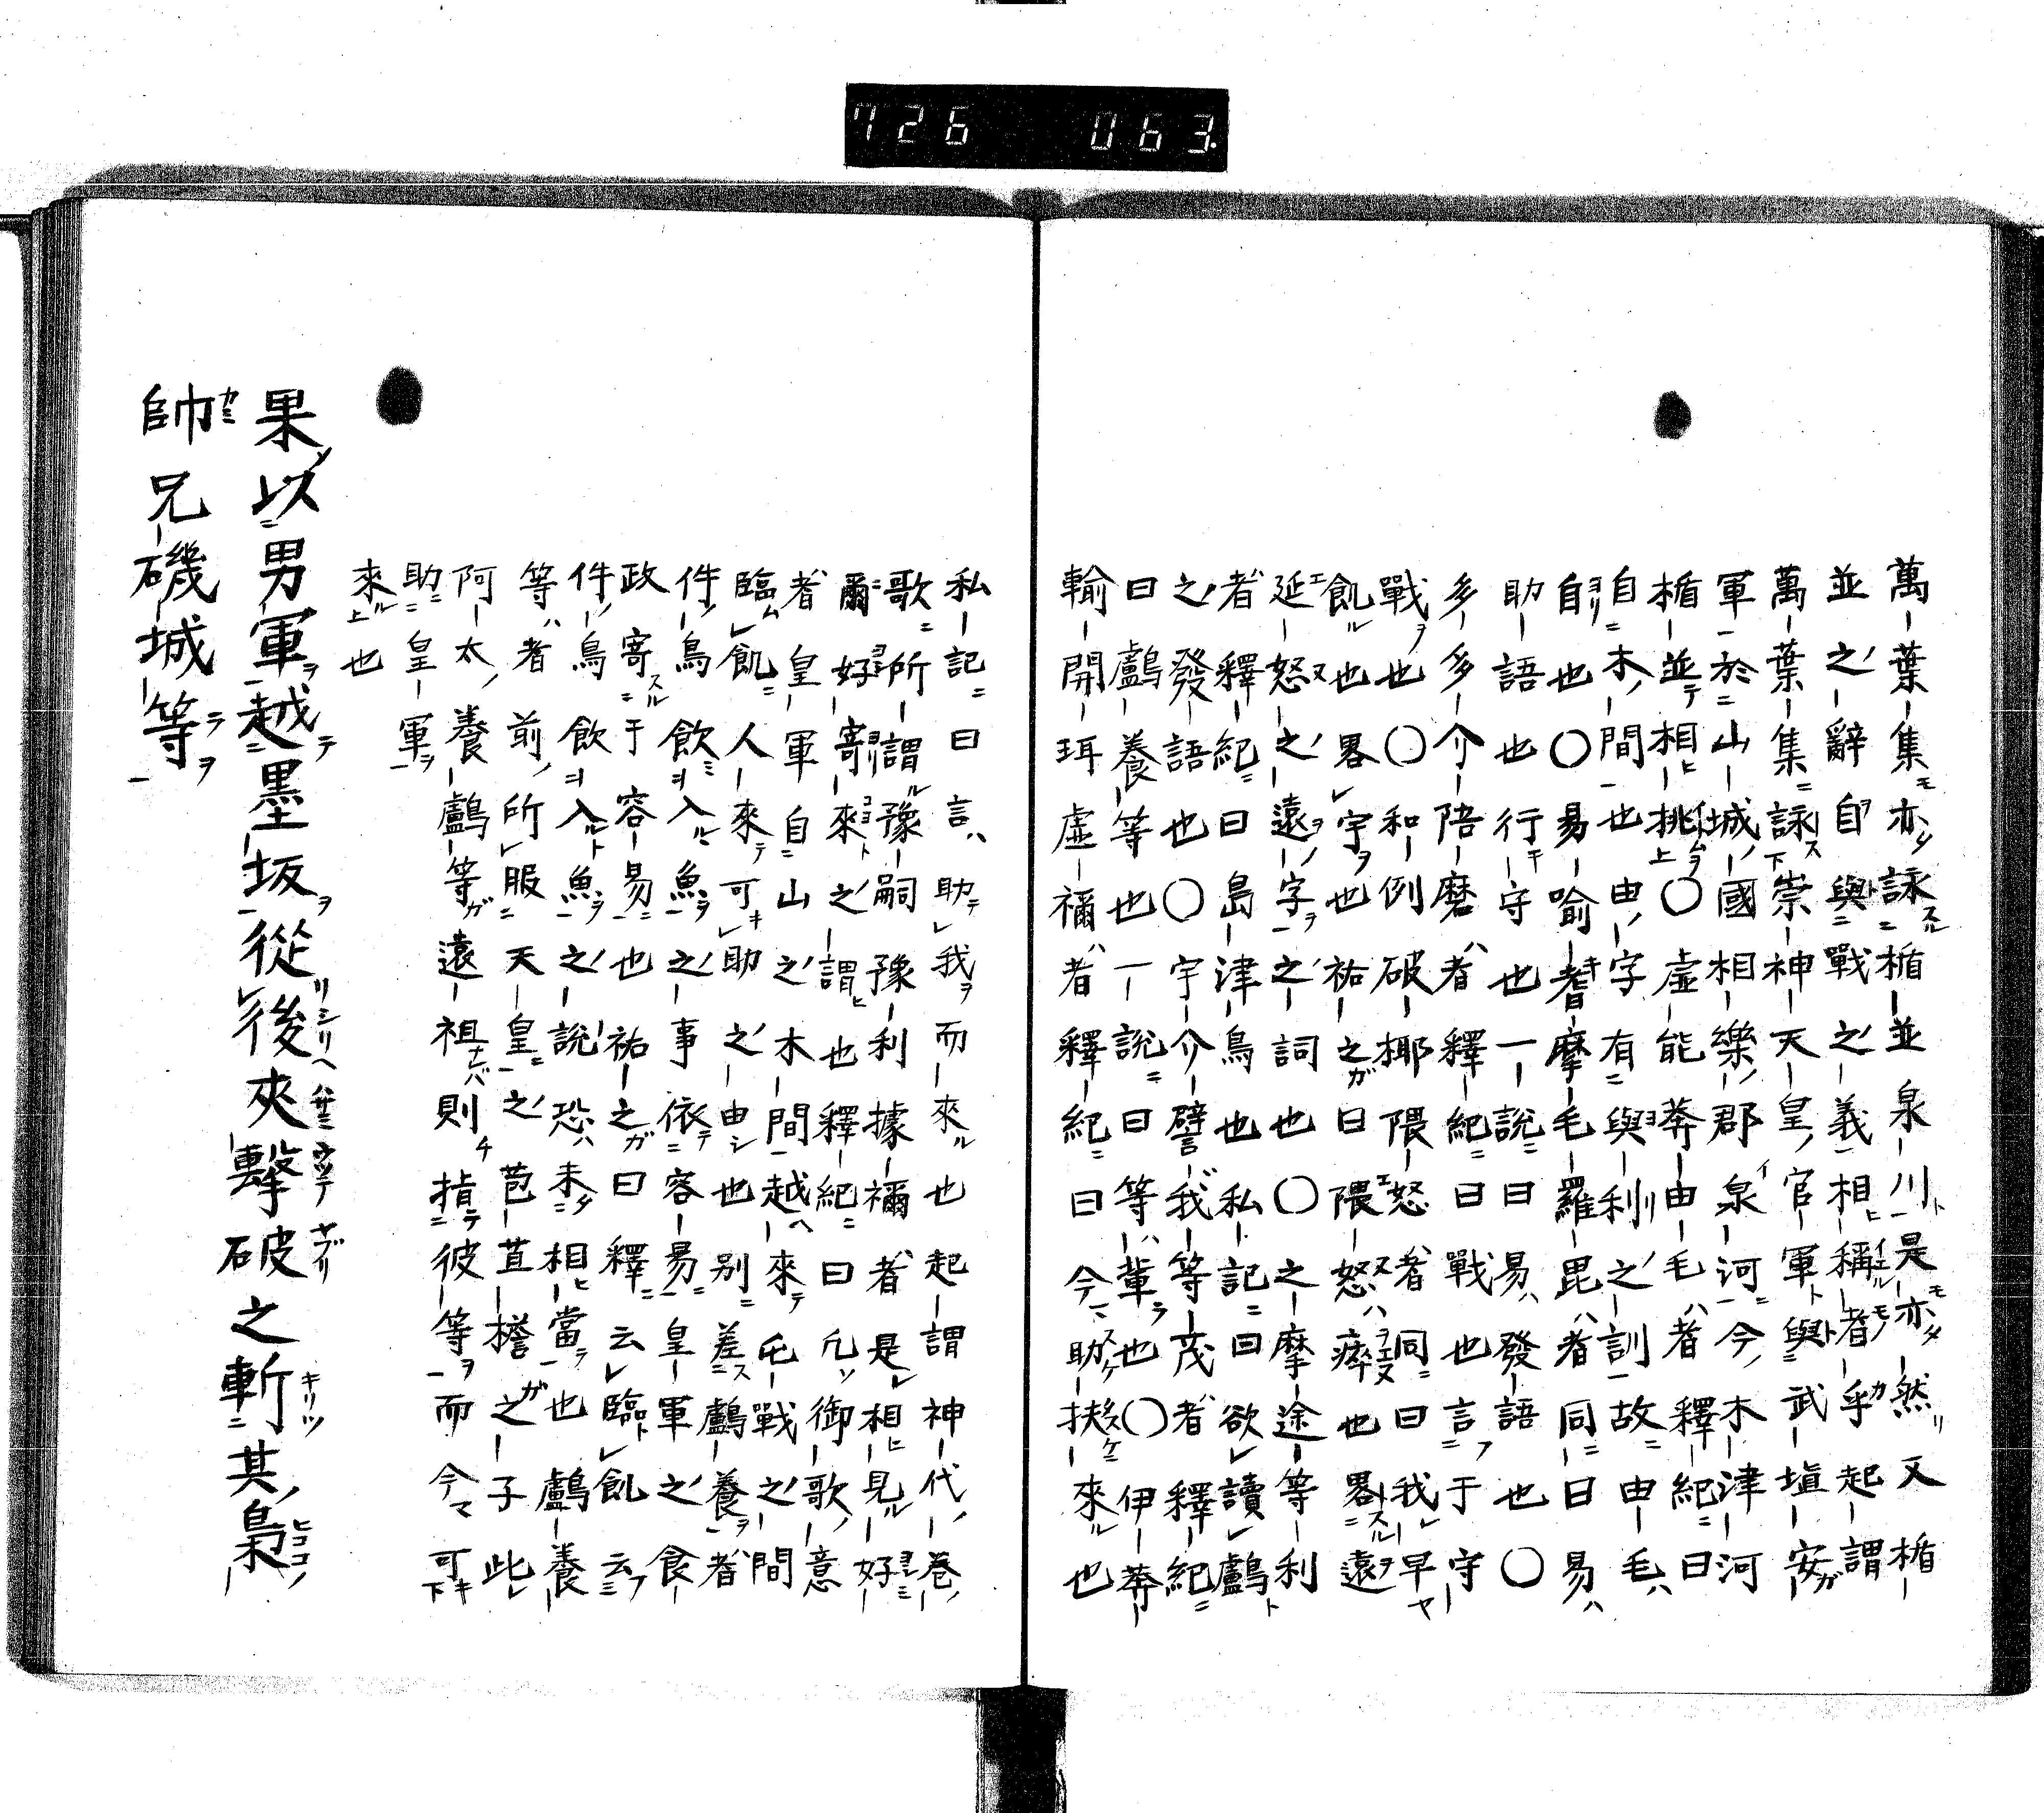 726 063.
萬葉集亦詠楯並泉川是亦然又楯
並之辭自與戰之義相稱者乎起謂
萬葉集詠崇神天皇官軍與武埴安
軍於山城國相樂郡泉河今木津河
楯並相挑〇虚能莾由毛者釋紀曰
自木間也由字有與利之訓故由毛
自也〇易喻耆摩毛羅毘者同曰易
助語也行守也一說曰易發語也〇
多多介陪磨者釋紀曰戰也言于守
戰也〇和例破椰隈怒者同曰我早
飢也畧宇也祐之曰隈怒瘁也畧遠
延怒之遠字之詞也〇之摩途等利
者釋紀曰島津鳥也私記曰欲讀鸕
之發語也〇宇介譬我等茂者釋紀
曰鸕養等也一說曰等輩也〇伊莾
輸開珥虚禰者釋紀曰今助扶來也
私記曰言助我而來也起謂神代卷
歌所謂豫嗣豫利據禰者是相見好
爾好寄來之謂也釋紀曰凢御歌意
者皇軍自山之木間越來乇戰之間
臨飢人來可助之由也別差鸕養者
件鳥飲入魚之事依容易皇軍之食
政寄于容易也祐之曰釋云臨飢云
件鳥飲入魚之說恐未相當也鸕養
等者前所服天皇之苞苴擔之子此
阿太養鸕等遠祖則指彼等而今可
助皇軍
來也
果以男軍越墨坂從後夾擊破之斬其梟
帥兄磯城等